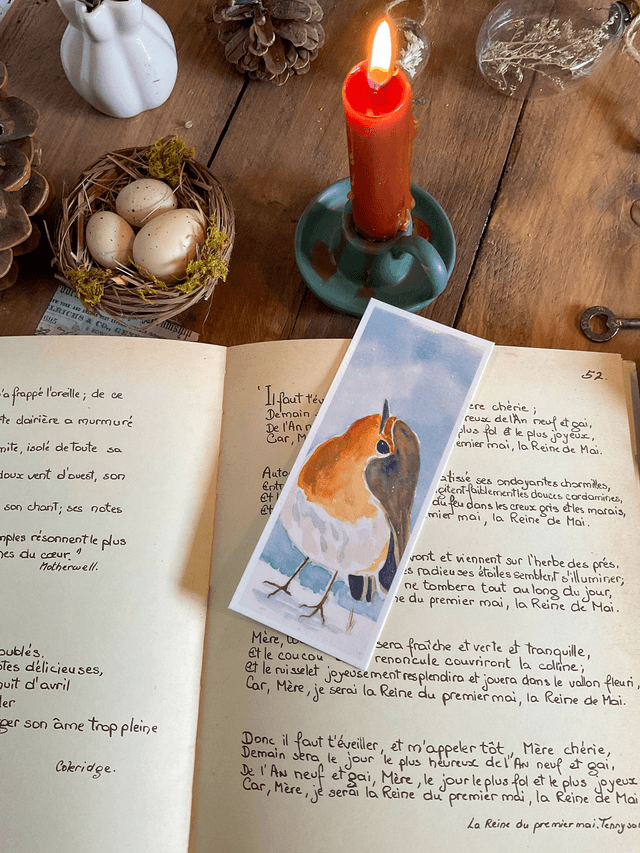 NEW YORK
RICHS & CO. GEN
1915
'a frappé l'oreille; de ce
te clairière a murmuré
mite, isolé de toute sa
doux vent d'ouest, son
son chant; ses notes
mples résonnent le plus
nes du cœur."
Motherwell.
oublés.
otes délicieuses,
nuit d'avril
ler
ger son âme trop pleine
Coleridge.
52.
'Il faut t'év ère chérie;
Demain reux de l'An neuf et gai,
De l'An plus fol et le plus joyeux,
Car, M emier mai, la Reine de Mai.
Auto atissé ses ondoyantes charmilles,
Entr gitent faiblement les douces cardamines,
Et l du feu dans les creux gris et les marais,
mier mai, la Reine de Mai.
vont et viennent sur l'herbe des prés.
s radieuses étoiles semblent s'illuminer;
ne tombera tout au long du jour,
du premier mai, la Reine de Mai.
Mère, to sera fraîche et verte et tranquille,
Et le coucou renoncule couvriront la colline;
Et le ruisselet joyeusement resplendira et jouera dans le vallon fleuri,
Car, Mère, je serai la Reine du premier mai, la Reine de Mai.
Donc il faut t'éveiller, et m'appeler tôt, Mère chérie,
Demain sera le jour le plus heureux de l'An neuf et gai,
De l'An neuf et gai, Mère, le jour le plus fol et le plus joyeux
Car, Mère, je serai la Reine du premier mai, la Reine de Mai
La Reine du premier mai. Tennyson